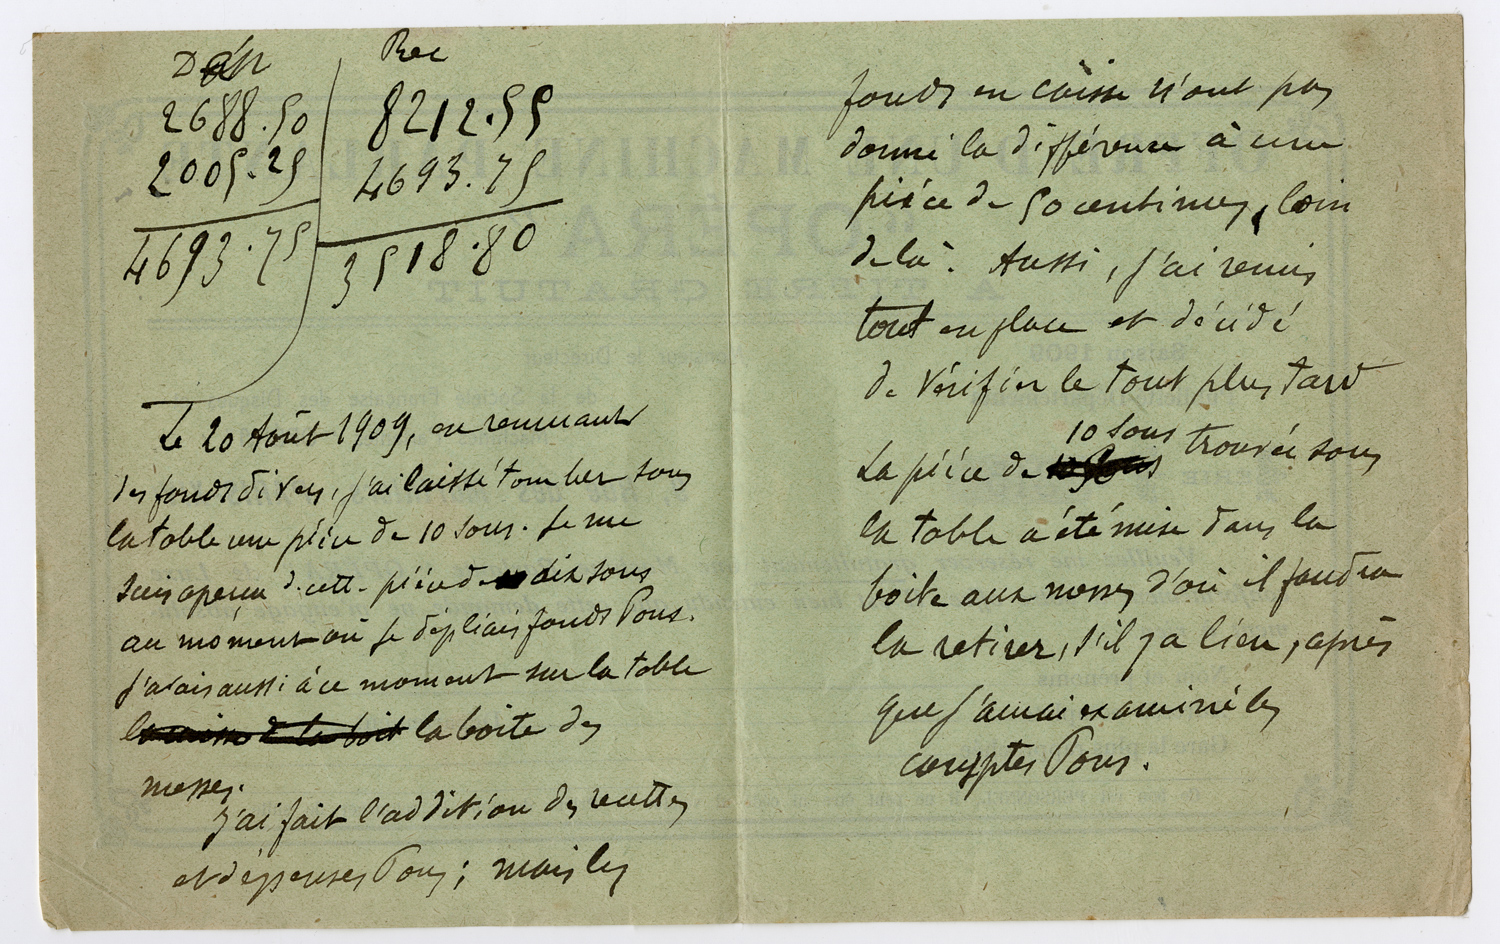 Dép
2688.50
2005.25
4693.75
Rec
8212.55
4693.75
3518.80
Le 20 Août 1909, en remuant
des fonds divers, j'ai laissé tomber sous
la table une pièce de 10 sous. Je me
suis aperçu d. cette pièce de dix sous
au moment où je dépliais fonds Pons.
J'avais aussi à ce moment sur la table
la caisse de la boit la boite des
messes.
J'ai fait l'addition des recettes
et dépenses Pons ; mais les
fonds en caisse n'ont pas
donné la différence à une
pièce de 50 centimes, loin
de là. Aussi, j'ai remis
tout en place et décidé
de vérifier le tout plus tard
La pièce de 10 sous trouvée sous
la table a été mise dans la
boite aux messes d'où il faudra
la retirer, s'il y a lieu, après
que j'aurai examiné les
comptes Pons.
OPERA